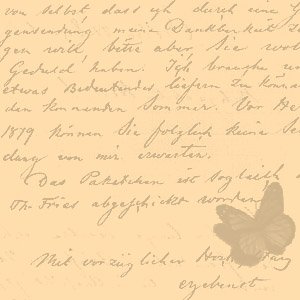 von selbst, dass ich durch eine
gensendung meine Dankbarkeit
gen will bitte aber Sie
Geduld haben. Ich brauche
etwas Bedeutendes liefern zu
den kommenden Sommer. Vor
1879 können Sie folglich keine
dung von mir erwarten.
Das Paketchen ist sogleich
Th. Fries abgeschickt worden
Mit vorzüglicher
ergebenst